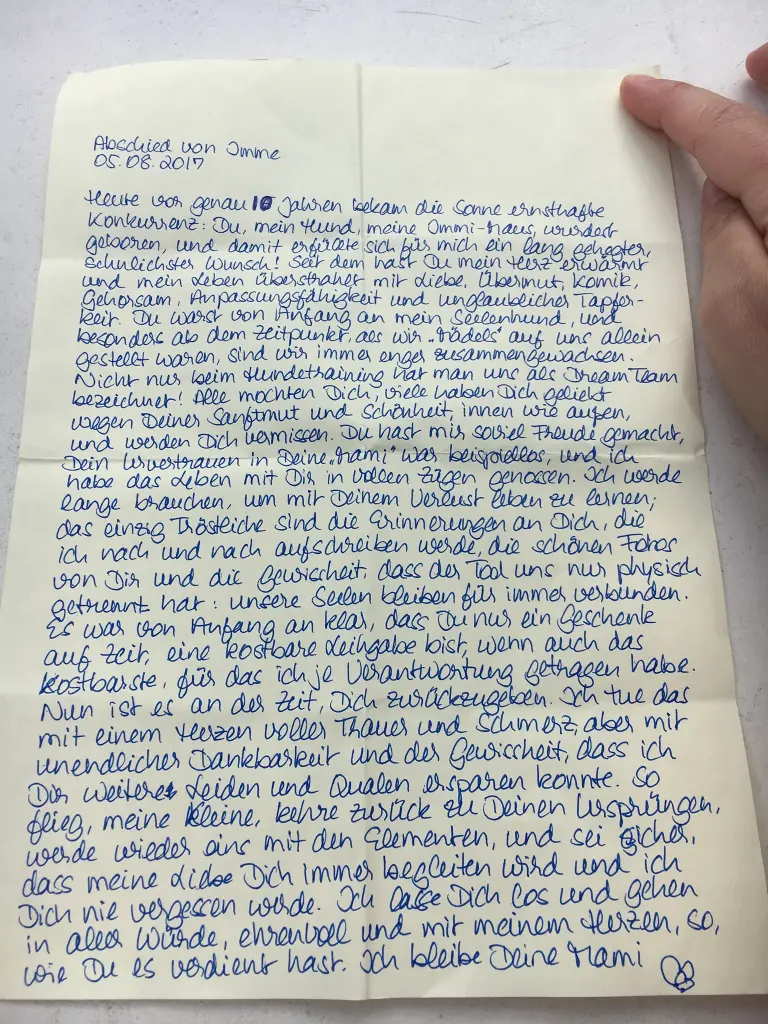 Abschied von Imme
05.08.2017
Heute vor genau 10 Jahren bekam die Sonne ernsthafte
Konkurrenz: Du, mein Hund, meine Immi-Maus, wurdest
geboren, und damit erfüllte sich für mich ein lang gehegter,
sehnlichster Wunsch! Seit dem hast Du mein Herz erwärmt
und mein Leben überstrahlt mit Liebe, Übermut, Komik,
Gehorsam, Anpassungsfähigkeit und unglaublicher Tapfer-
keit. Du warst von Anfang an mein Seelenhund, und
besonders ab dem Zeitpunkt, als wir „Mädels" auf uns allein
gestellt waren, sind wir immer enger zusammengewachsen.
Nicht nur beim Hundetraining hat man uns als DreamTeam
bezeichnet! Alle mochten Dich, viele haben Dich geliebt
wegen Deiner Sanftmut und Schönheit, innen wie außen,
und werden Dich vermissen. Du hast mir soviel Freude gemacht,
Dein Urvertrauen in Deine „Mami" war beispiellos, und ich
habe das Leben mit Dir in vollen Zügen genossen. Ich werde
lange brauchen, um mit Deinem Verlust leben zu lernen;
das einzig Tröstliche sind die Erinnerungen an Dich, die
ich nach und nach aufschreiben werde, die schönen Fotos
von Dir und die Gewissheit, dass der Tod uns nur physisch
getrennt hat: unsere Seelen bleiben für immer verbunden.
Es war von Anfang an klar, dass Du nur ein Geschenk
auf Zeit, eine kostbare Leihgabe bist, wenn auch das
Kostbarste, für das ich je Verantwortung getragen habe.
Nun ist es an der Zeit, Dich zurückzugeben. Ich tue das
mit einem Herzen voller Trauer und Schmerz, aber mit
unendlicher Dankbarkeit und der Gewissheit, dass ich
Dir weitere Leiden und Qualen ersparen konnte. So
flieg, meine Kleine, kehre zurück zu Deinen Ursprüngen,
werde wieder eins mit den Elementen, und sei sicher,
dass meine Liebe Dich immer begleiten wird und ich
Dich nie vergessen werde. Ich lasse Dich los und gehen
in aller Würde, ehrenvoll und mit meinem Herzen, so,
wie Du es verdient hast. Ich bleibe Deine Mami